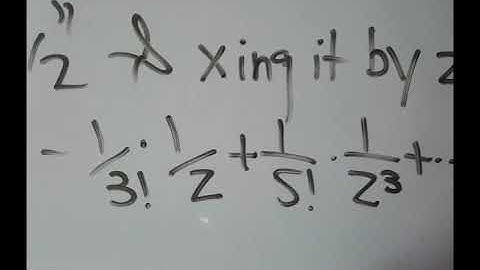 1/2" & xing it by z
- 1/3! · 1/z + 1/5! · 1/z³ + ...